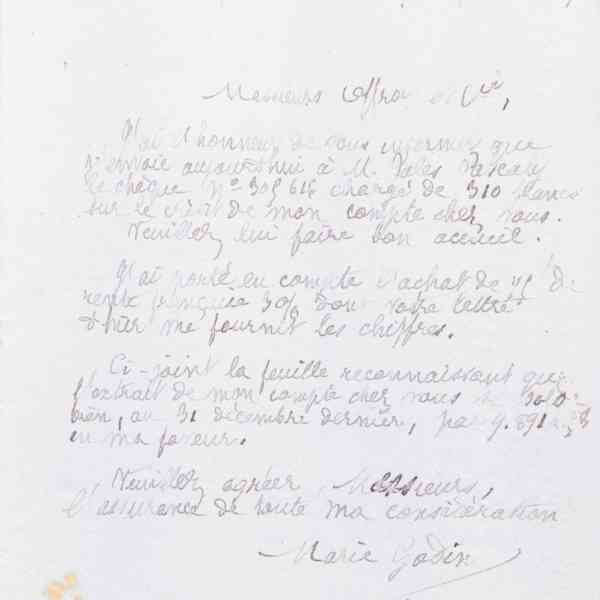 Messieurs Offroy et Cie,
J'ai l'honneur de vous informer que
j'envoie aujourd'hui à M. Jules Pascaly
le chèque n° 305 616 chargé de 310 francs
sur le crédit de mon compte chez vous.
Veuillez lui faire bon accueil.
J'ai porté en compte l'achat de de
rente française 3% dont votre lettre
d'hier me fournit les chiffres.
Ci-joint la feuille reconnaissant que
l'extrait de mon compte chez vous se solde
bien, au 31 décembre dernier, par 9.891
en ma faveur.
Veuillez agréer, Messieurs,
l'assurance de toute ma considération
Marie Godin